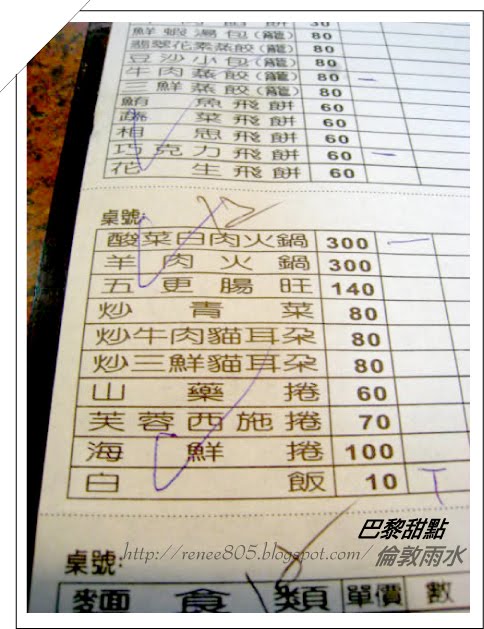 鮮蝦湯包(籠) 80
翡翠花素蒸餃(籠) 80
豆沙小包(籠) 80
牛肉蒸餃(籠) 80
三鮮蒸餃(籠) 80
鮪魚飛餅 60
蔬菜飛餅 60
相思飛餅 60
巧克力飛餅 60
花生飛餅 60
桌號:
酸菜白肉火鍋 300
羊肉火鍋 300
五更腸旺 140
炒青菜 80
炒牛肉貓耳朵 80
炒三鮮貓耳朵 80
山藥捲 60
芙蓉西施捲 70
海鮮捲 100
白飯 10
巴黎甜點
http://renee805.blogspot.com/ 倫敦雨水
桌號:
麵食類 單價 數